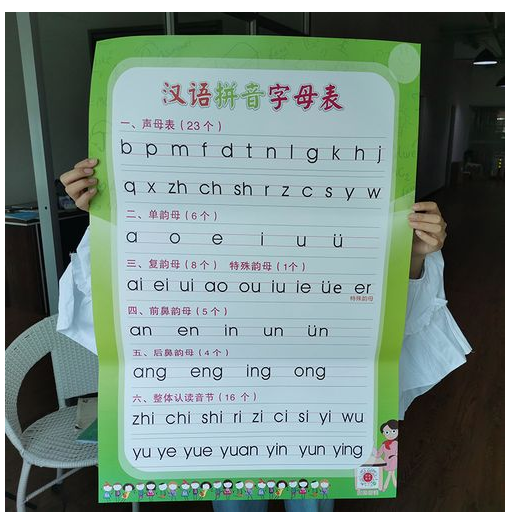 汉语拼音字母表
一、声母表（23个）
b p m f d t n l g k h j
q x zh ch sh r z c s y w
二、单韵母（6个）
ɑ o e i u ü
三、复韵母（8个） 特殊韵母（1个）
ɑi ei ui ɑo ou iu ie üe er
特殊韵母
四、前鼻韵母（5个）
ɑn en in un ün
五、后鼻韵母（4个）
ɑng eng ing ong
六、整体认读音节（16个）
zhi chi shi ri zi ci si yi wu
yu ye yue yuɑn yin yun ying